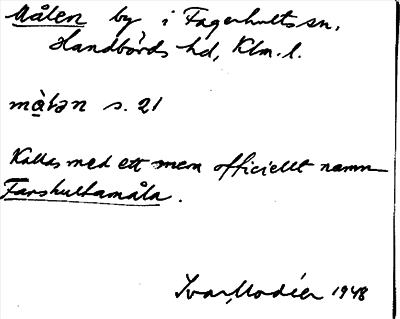 Målen by i Fagerhults sn,
Handbörds hd, Klm. l.
màlən s. 21
Kallas med ett mera officiellt namn
Farshultamåla.
Ivar Modéer 1948